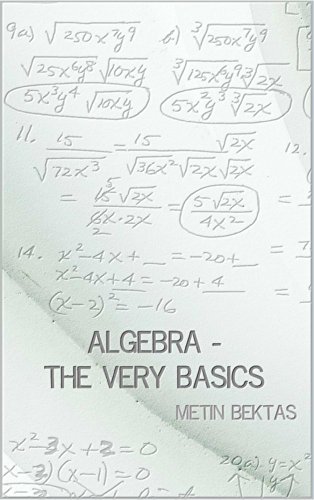 9a) √250x⁷y⁹ b.) ³√250x⁷y⁹
√25x⁶y⁸ √10xy ³√125x⁶y⁹ ³√2x
5x³y⁴ √10xy 5x²y³ ³√2x
11. 15/√72x³ = 15/√36x²√2x √2x/√2x 12.
= 15√2x/6x·2x = 5√2x/4x² =
14. x²-4x+__ = -20+__ =
x²-4x+4 = -20+4
(x-2)² = -16 =
ALGEBRA -
THE VERY BASICS
METIN BEKTAS
x²-3x+2=0
x-2)(x-1)=0 20.a) y=x²